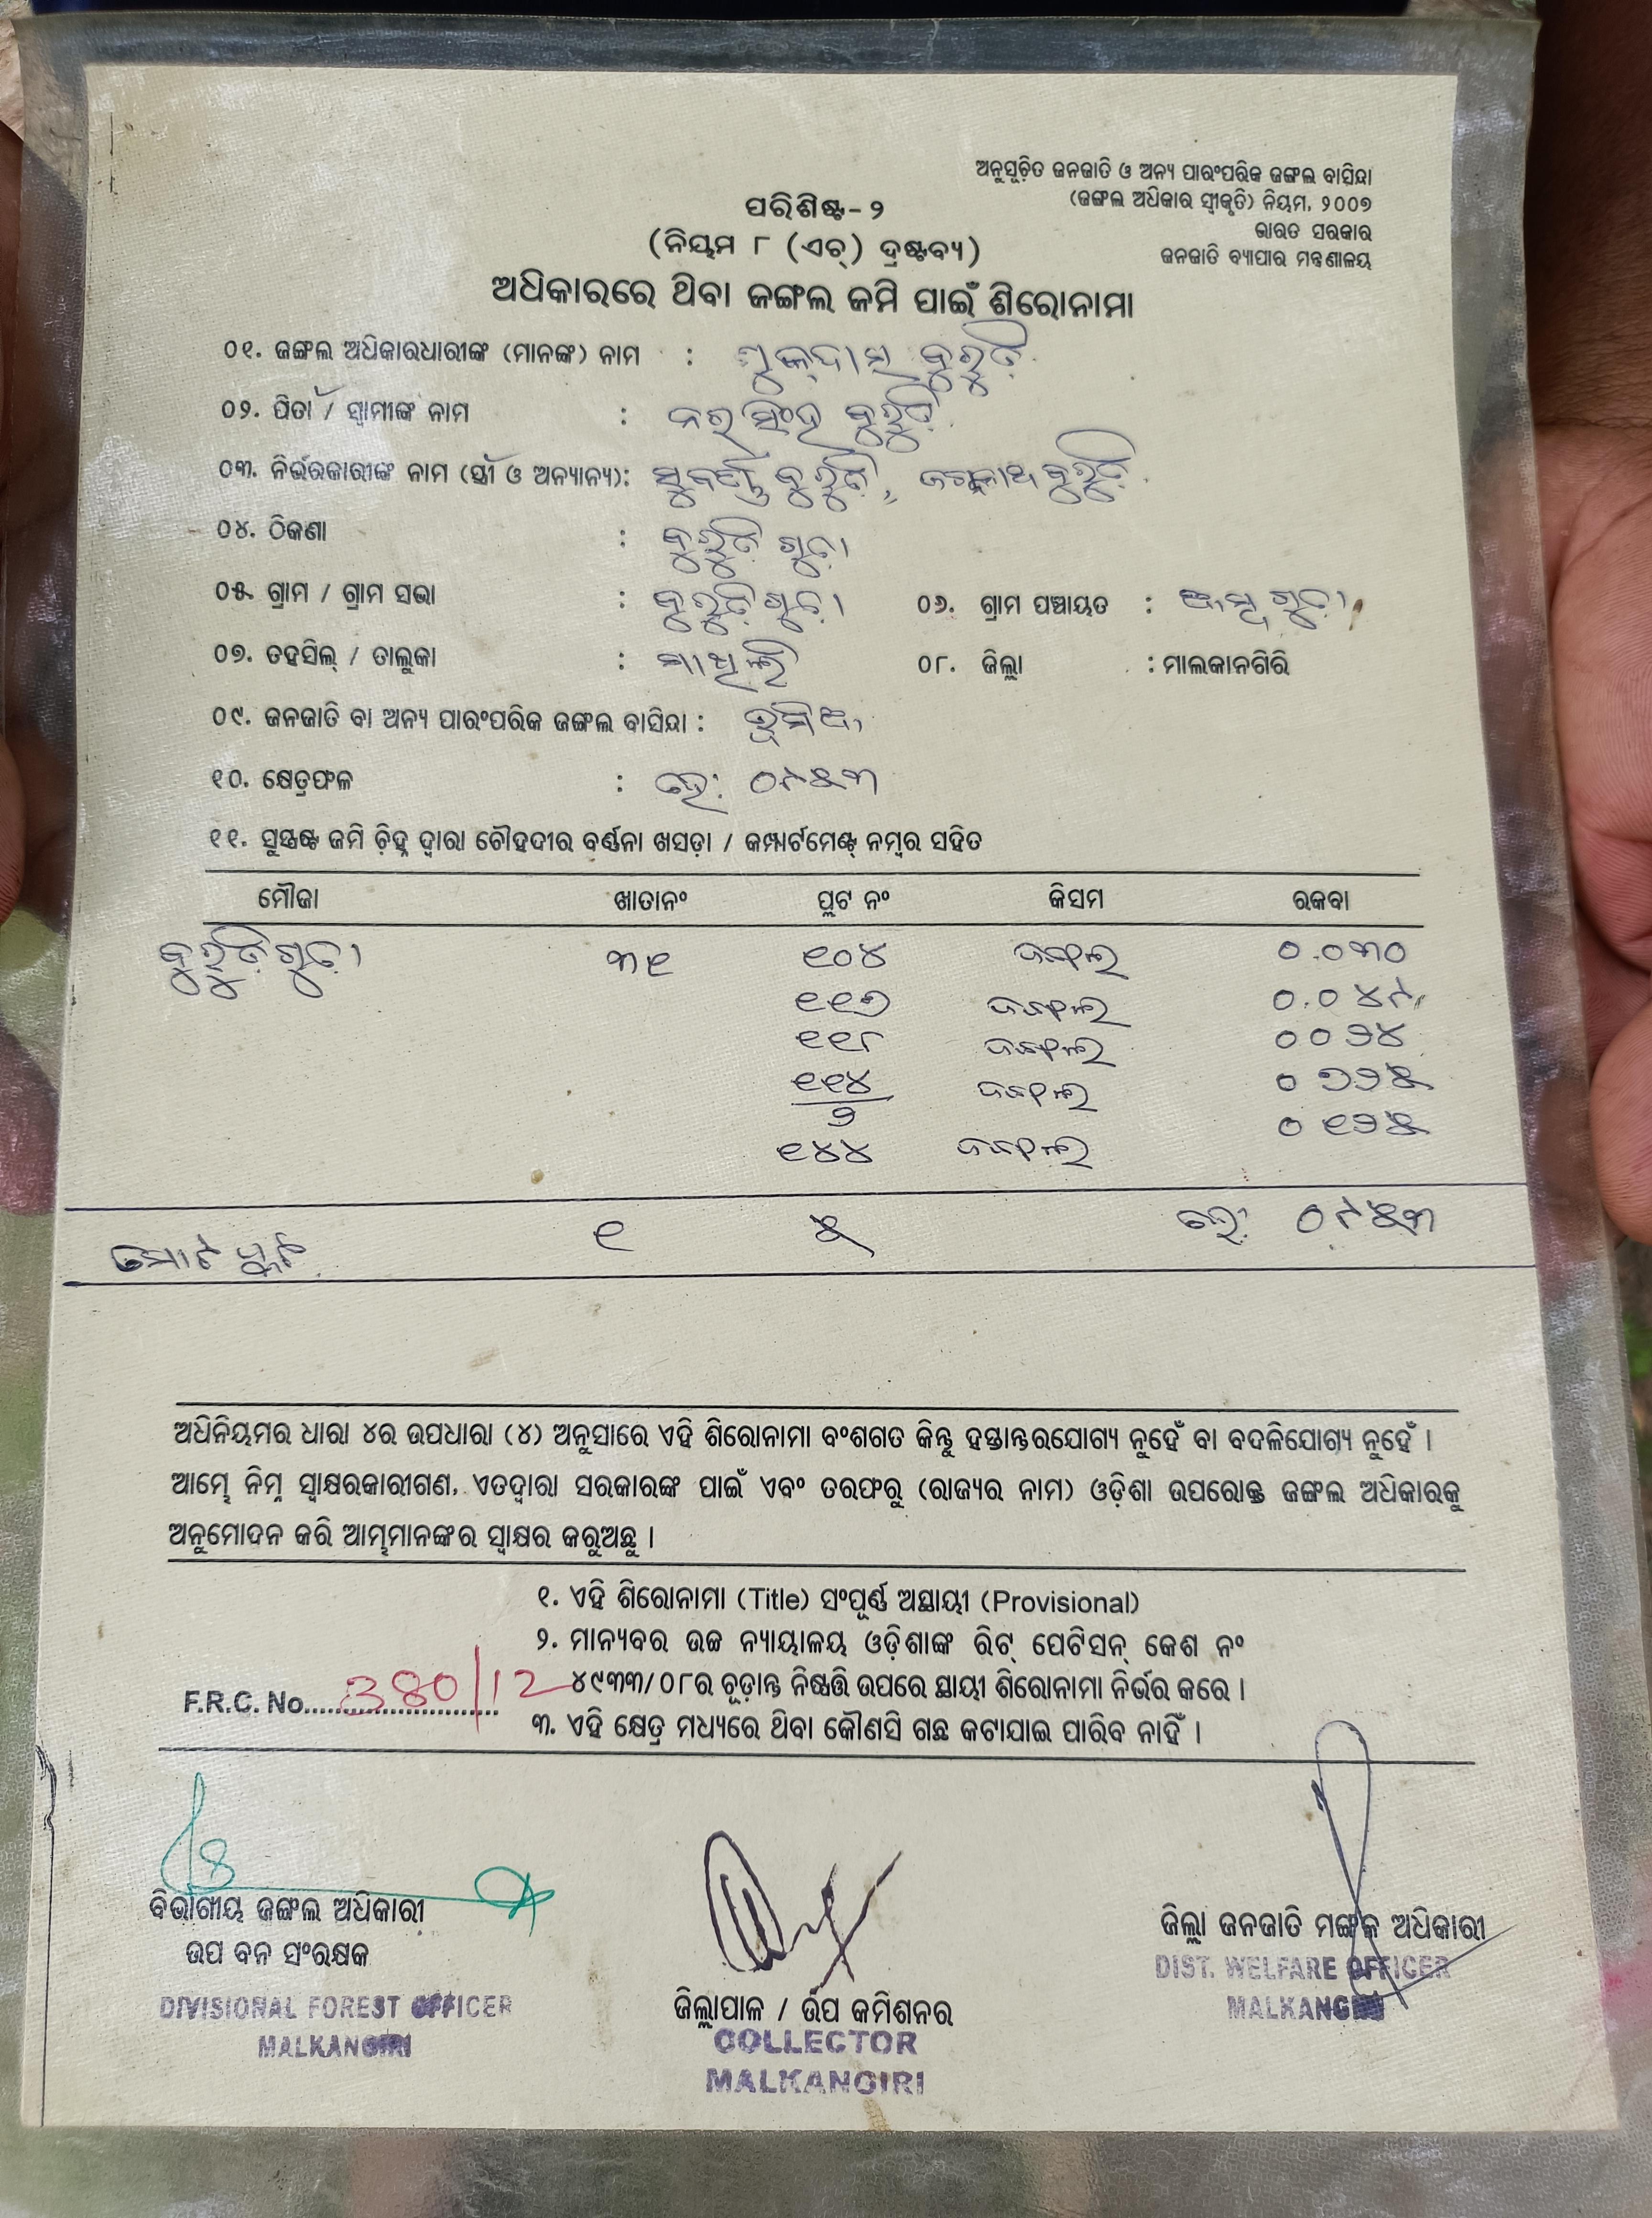 ଅନୁସୂଚିତ ଜନଜାତି ଓ ଅନ୍ୟ ପାରଂପରିକ ଜଙ୍ଗଲ ବାସିନ୍ଦା
(ଜଙ୍ଗଲ ଅଧିକାର ସ୍ୱୀକୃତି) ନିୟମ, ୨୦୦୭
ଭାରତ ସରକାର
ଜନଜାତି ବ୍ୟାପାର ମନ୍ତ୍ରଣାଳୟ
ପରିଶିଷ୍ଟ-୨
(ନିୟମ ୮ (ଏଚ୍) ଦ୍ରଷ୍ଟବ୍ୟ)
ଅଧିକାରରେ ଥିବା ଜଙ୍ଗଲ ଜମି ପାଇଁ ଶିରୋନାମା
୦୧. ଜଙ୍ଗଲ ଅଧିକାରଧାରୀଙ୍କ (ମାନଙ୍କ) ନାମ :
୦୨. ପିତା / ସ୍ୱାମୀଙ୍କ ନାମ : ନରସିଂହ
୦୩. ନିର୍ଭରକାରୀଙ୍କ ନାମ (ସ୍ତ୍ରୀ ଓ ଅନ୍ୟାନ୍ୟ):
୦୪. ଠିକଣା :
୦୫. ଗ୍ରାମ / ଗ୍ରାମ ସଭା : ୦୬. ଗ୍ରାମ ପଞ୍ଚାୟତ :
୦୭. ତହସିଲ୍ / ତାଲୁକା : ମାଥିଲି ୦୮. ଜିଲ୍ଲା : ମାଲକାନଗିରି
୦୯. ଜନଜାତି ବା ଅନ୍ୟ ପାରଂପରିକ ଜଙ୍ଗଲ ବାସିନ୍ଦା : ଭୂମିଆ
୧୦. କ୍ଷେତ୍ରଫଳ : ହେ: ୦.୯୫୩
୧୧. ସୁସ୍ପଷ୍ଟ ଜମି ଚିହ୍ନ ଦ୍ୱାରା ଚୌହଦୀର ବର୍ଣ୍ଣନା ଖସଡ଼ା / କମ୍ପାର୍ଟମେଣ୍ଟ୍ ନମ୍ବର ସହିତ
ମୌଜା ଖାତାନଂ ପ୍ଲଟ ନଂ କିସମ ରକବା
୩୧ ୧୦୪ ଜଙ୍ଗଲ ୦.୦୩୦
୧୧୭ ଜଙ୍ଗଲ ୦.୦୪୯
୧୧୮ ଜଙ୍ଗଲ ୦.୦୨୪
୧୧୪/୨ ଜଙ୍ଗଲ ୦.୭୨୫
୧୪୪ ଜଙ୍ଗଲ ୦.୧୨୫
ମୋଟ ପ୍ଲଟ ୧ ୫ ହେ: ୦.୯୫୩
ଅଧିନିୟମର ଧାରା ୪ର ଉପଧାରା (୪) ଅନୁସାରେ ଏହି ଶିରୋନାମା ବଂଶଗତ କିନ୍ତୁ ହସ୍ତାନ୍ତରଯୋଗ୍ୟ ନୁହେଁ ବା ବଦଳିଯୋଗ୍ୟ ନୁହେଁ ।
ଆମ୍ଭେ ନିମ୍ନ ସ୍ୱାକ୍ଷରକାରୀଗଣ, ଏତଦ୍ୱାରା ସରକାରଙ୍କ ପାଇଁ ଏବଂ ତରଫରୁ (ରାଜ୍ୟର ନାମ) ଓଡ଼ିଶା ଉପରୋକ୍ତ ଜଙ୍ଗଲ ଅଧିକାରକୁ
ଅନୁମୋଦନ କରି ଆମ୍ଭମାନଙ୍କର ସ୍ୱାକ୍ଷର କରୁଅଛୁ ।
୧. ଏହି ଶିରୋନାମା (Title) ସଂପୂର୍ଣ୍ଣ ଅସ୍ଥାୟୀ (Provisional)
୨. ମାନ୍ୟବର ଉଚ୍ଚ ନ୍ୟାୟାଳୟ ଓଡ଼ିଶାଙ୍କ ରିଟ୍ ପେଟିସନ୍ କେଶ ନଂ
୪୯୩୩/୦୮ର ଚୂଡ଼ାନ୍ତ ନିଷ୍ପତ୍ତି ଉପରେ ସ୍ଥାୟୀ ଶିରୋନାମା ନିର୍ଭର କରେ ।
F.R.C. No. 380/12
୩. ଏହି କ୍ଷେତ୍ର ମଧ୍ୟରେ ଥିବା କୌଣସି ଗଛ କଟାଯାଇ ପାରିବ ନାହିଁ ।
ବିଭାଗୀୟ ଜଙ୍ଗଲ ଅଧିକାରୀ
ଉପ ବନ ସଂରକ୍ଷକ
DIVISIONAL FOREST OFFICER
MALKANGIRI
ଜିଲ୍ଲାପାଳ / ଉପ କମିଶନର
COLLECTOR
MALKANGIRI
ଜିଲ୍ଲା ଜନଜାତି ମଙ୍ଗଳ ଅଧିକାରୀ
DIST. WELFARE OFFICER
MALKANGIRI